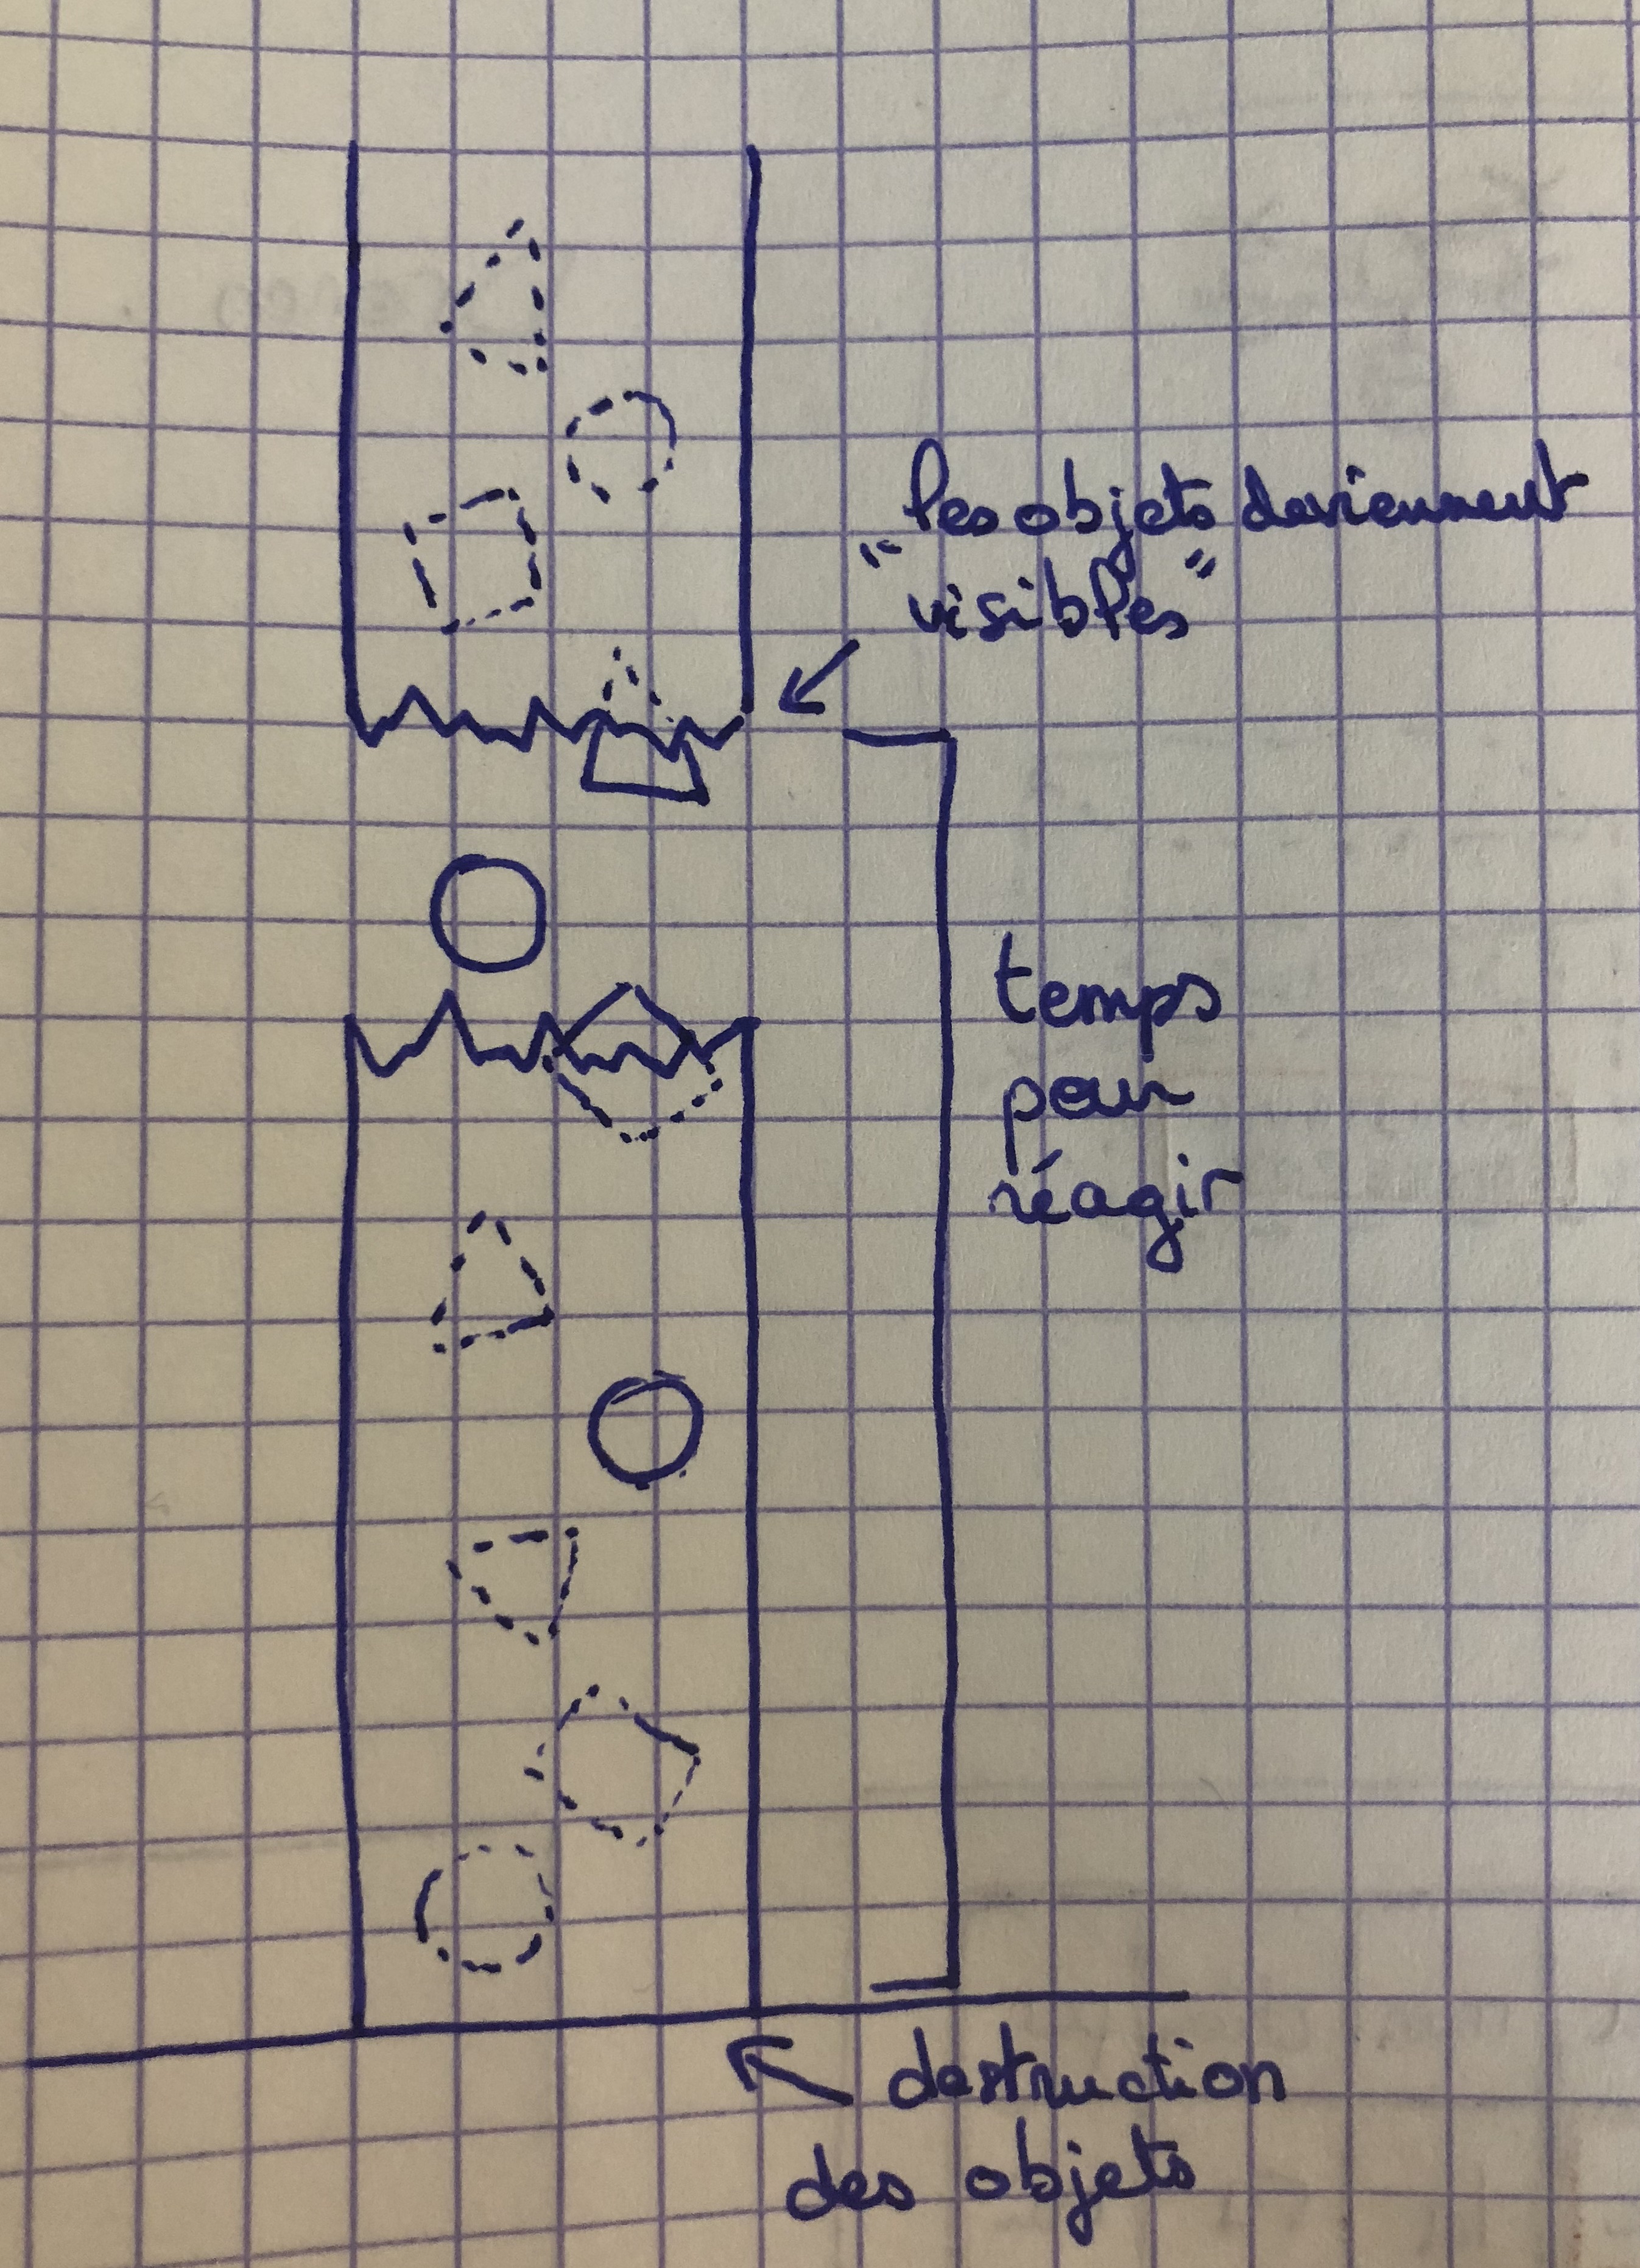 les objets deviennent
" visibles "
temps
pour
réagir
destruction
des objets